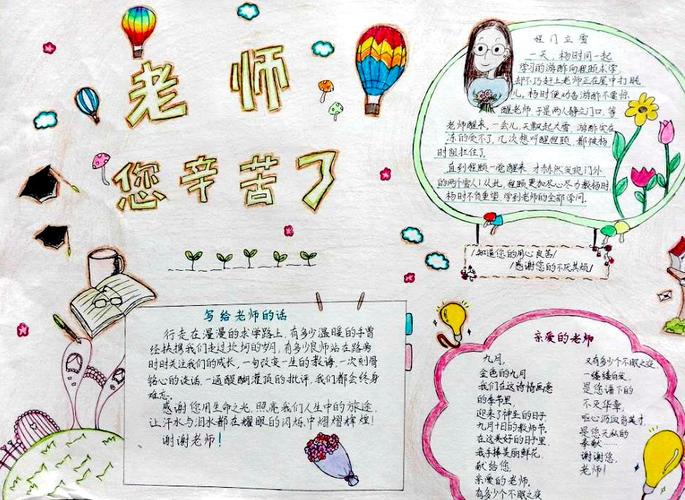 老师
您辛苦了
程门立雪
一天,杨时同一起
学习的游酢向程颐求学,
却不巧赶上老师正在屋中打盹
儿,杨时便劝告游酢不要惊
醒老师,于是两人静立门口,等
老师醒来,一会儿,天飘起大雪,游酢实在
冻的受不了,几次想叫醒程颐,都被杨
时阻拦住了,
直到程颐一觉醒来,才赫然发现门外
的两个雪人!从此,程颐更加尽心尽力教杨时,
杨时不负重望,学到老师的全部学问.
知道您的用心良苦!
感谢您的不厌其烦!
写给老师的话
行走在漫漫的求学路上,有多少温暖的手曾
经扶携我们走过坎坷的岁月,有多少良师站在路旁
时时关注我们的成长,一句改变一生的教诲,一次刻骨
铭心的谈话,一通醍醐灌顶的批评,我们都会终身
难忘.
感谢您用生命之光,照亮我们人生中的旅途,
让汗水与泪水都在耀眼的闪烁中熠熠辉煌!
谢谢老师!
亲爱的老师
九月,
金色的九月
我们在这诗情画意
的季节里,
迎来了神圣的日子
九月十日的教师节,
在这美好的日子里,
我手捧美丽鲜花,
献给您,
亲爱的老师,
有多少个不眠之夜
又有多少个不眠之夜
一缕缕白发,
是您谱下的
不灭华章,
呕心沥血育英才,
是您无私的
奉献……
谢谢您,
老师!